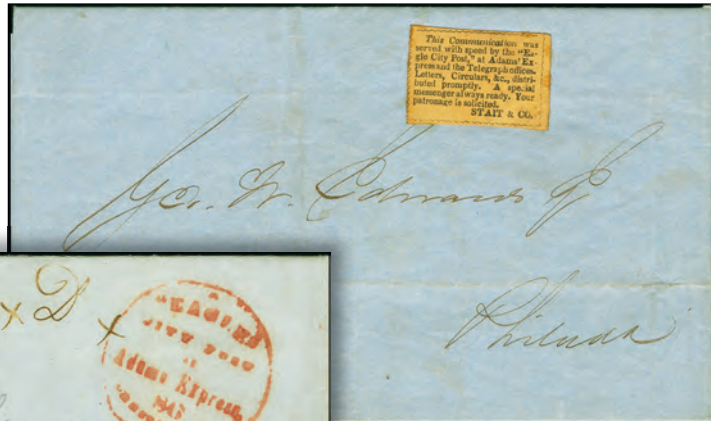 This Communication was
served with speed by the "Ea-
gle City Post," at Adams' Ex-
press and the Telegraph offices.
Letters, Circulars, &c., distri-
buted promptly. A special
messenger always ready. Your
patronage is solicited.
STAIT & CO.
Geo. W. Edwards
Philada
x D x
"EAGLE"
CITY POST
Adams Express,